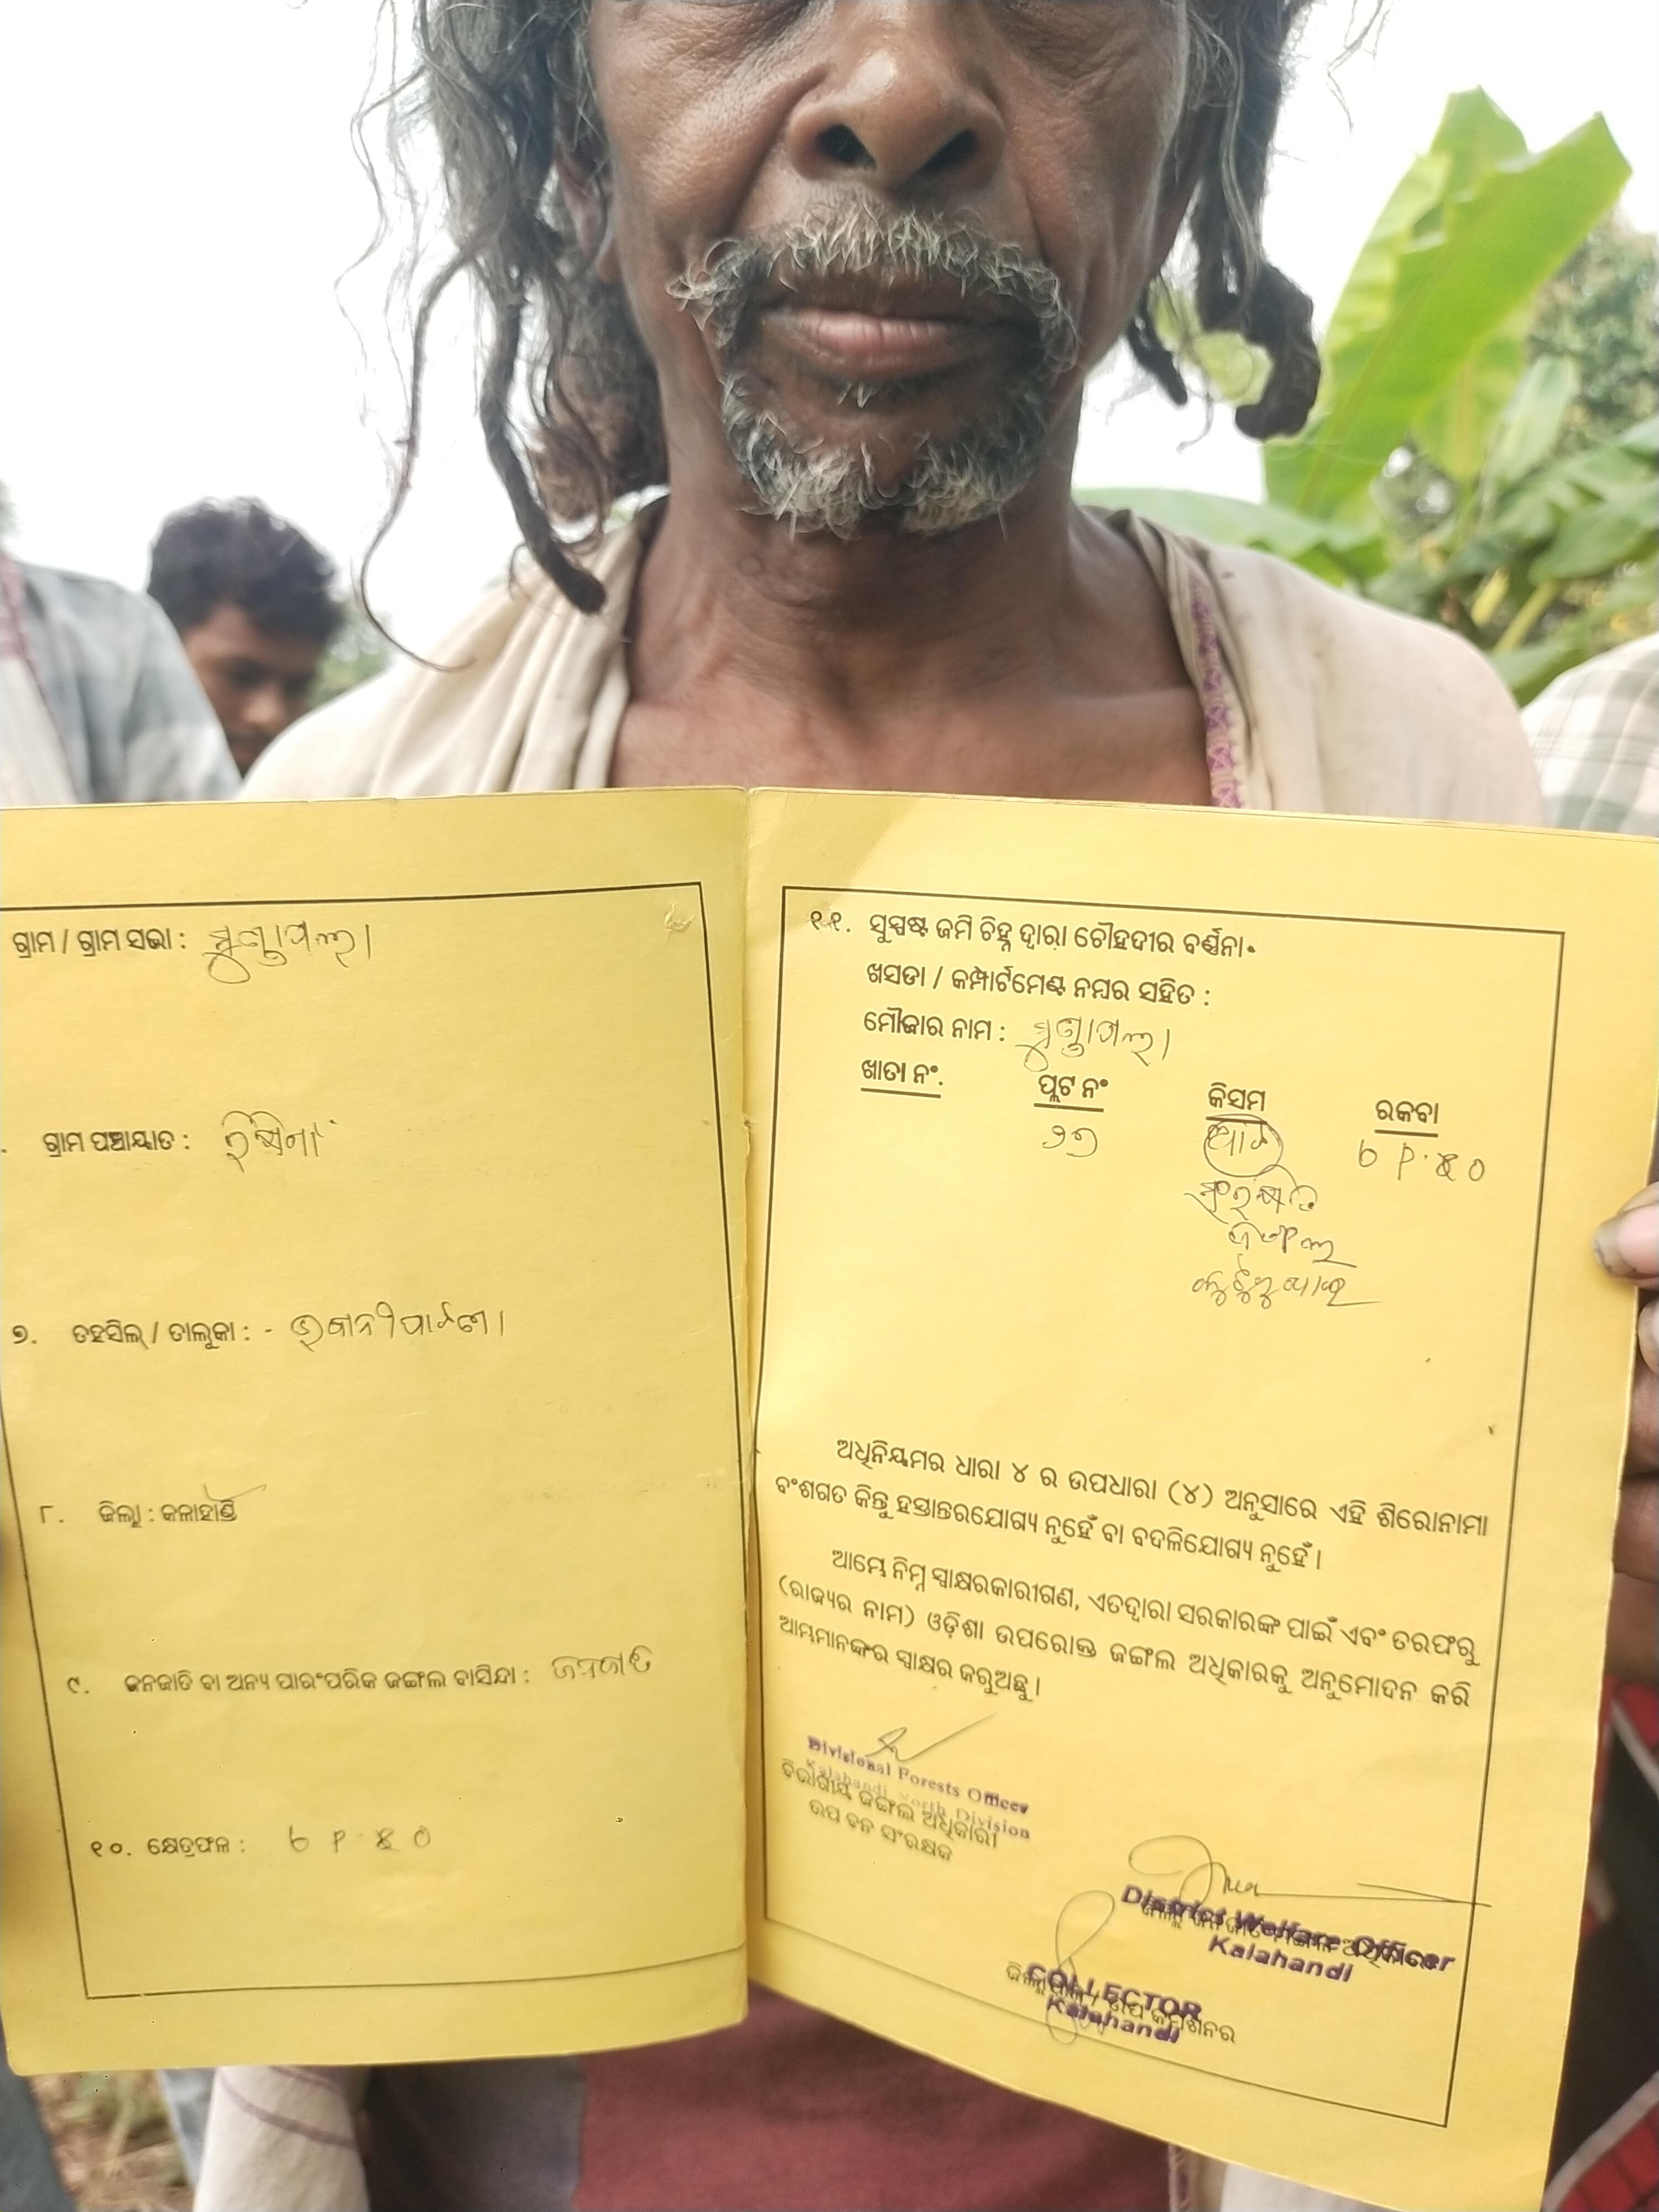 ଗ୍ରାମ / ଗ୍ରାମ ସଭା : ମୁଣ୍ଡାପଲ୍ଲା
ଗ୍ରାମ ପଞ୍ଚାୟାତ :
୭. ତହସିଲ୍ / ତାଲୁକା : - ଭବାନୀପାଟଣା
୮. ଜିଲ୍ଲା : କଳାହାଣ୍ଡି
୯. ଜନଜାତି ବା ଅନ୍ୟ ପାରଂପରିକ ଜଙ୍ଗଲ ବାସିନ୍ଦା : ଜନଜାତି
୧୦. କ୍ଷେତ୍ରଫଳ :
୧୧. ସୁସ୍ପଷ୍ଟ ଜମି ଚିହ୍ନ ଦ୍ୱାରା ଚୌହଦୀର ବର୍ଣ୍ଣନା.
ଖସଡା / କମ୍ପାର୍ଟମେଣ୍ଟ ନମ୍ବର ସହିତ :
ମୌଜାର ନାମ : ମୁଣ୍ଡାପଲ୍ଲା
ଖାତା ନଂ. ପ୍ଲଟ ନଂ କିସମ ରକବା
୨୭
ସଂରକ୍ଷିତ
ଜଙ୍ଗଲ
ଅଧିନିୟମର ଧାରା ୪ ର ଉପଧାରା (୪) ଅନୁସାରେ ଏହି ଶିରୋନାମା
ବଂଶଗତ କିନ୍ତୁ ହସ୍ତାନ୍ତରଯୋଗ୍ୟ ନୁହେଁ ବା ବଦଳିଯୋଗ୍ୟ ନୁହେଁ ।
ଆମ୍ଭେ ନିମ୍ନ ସ୍ୱାକ୍ଷରକାରୀଗଣ, ଏତଦ୍ୱାରା ସରକାରଙ୍କ ପାଇଁ ଏବଂ ତରଫରୁ
(ରାଜ୍ୟର ନାମ) ଓଡ଼ିଶା ଉପରୋକ୍ତ ଜଙ୍ଗଲ ଅଧିକାରକୁ ଅନୁମୋଦନ କରି
ଆମ୍ଭମାନଙ୍କର ସ୍ୱାକ୍ଷର କରୁଅଛୁ ।
Divisional Forests Officer
Kalahandi North Division
ବିଭାଗୀୟ ଜଙ୍ଗଲ ଅଧିକାରୀ
ଉପ ବନ ସଂରକ୍ଷକ
District Welfare Officer
Kalahandi
COLLECTOR
ଜିଲ୍ଲାପାଳ / ଉପ କମିଶନର
Kalahandi